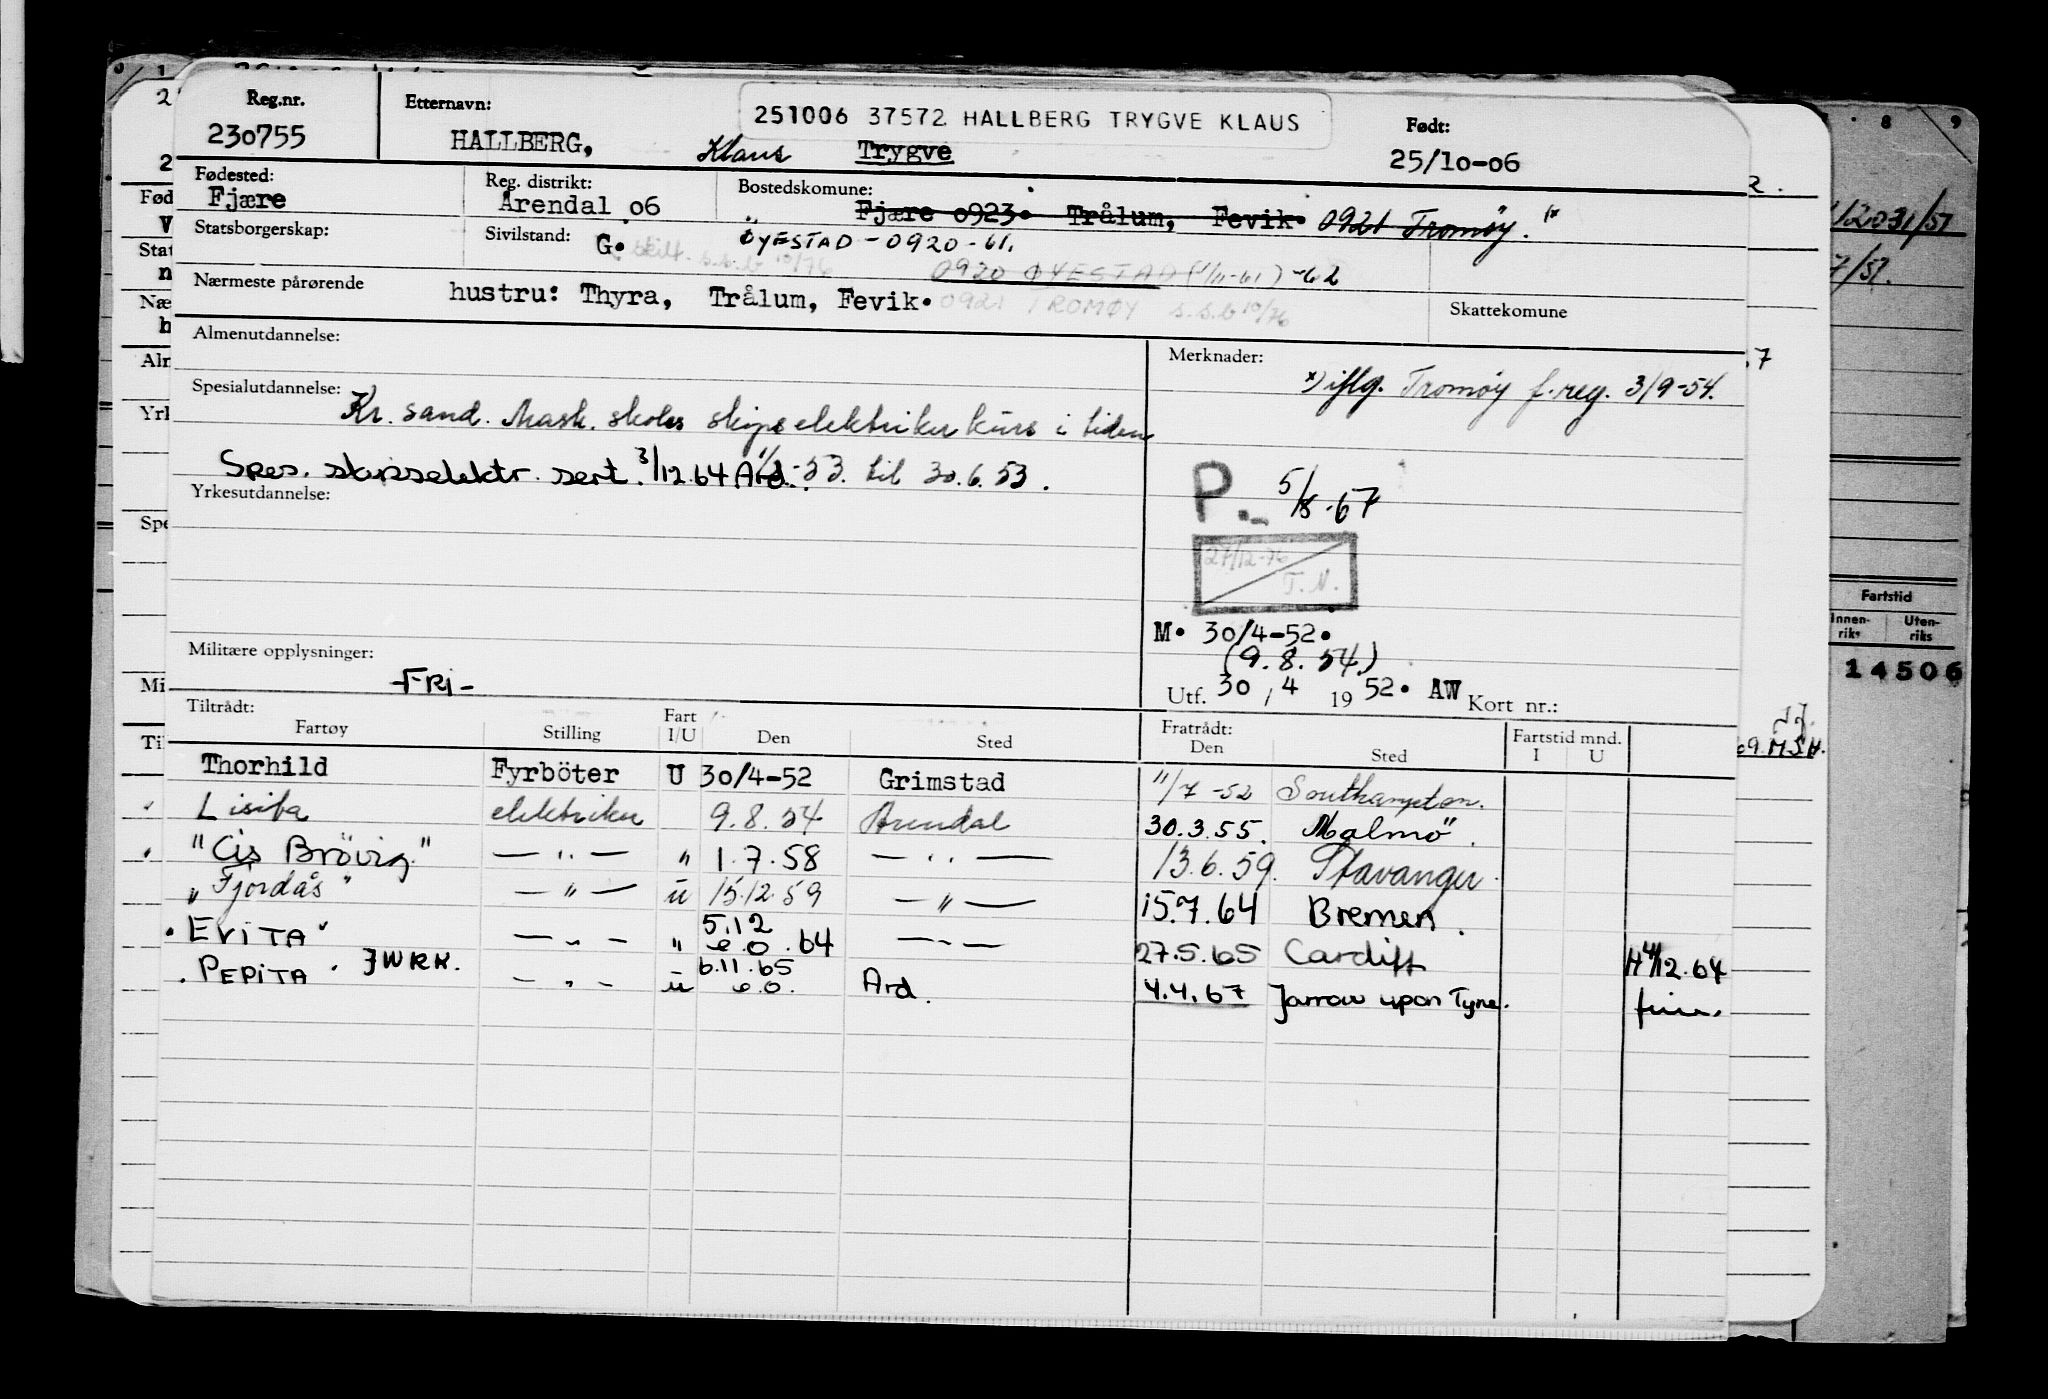 Reg.nr.
230755
Etternavn:
HALLBERG, Klaus Trygve
251006 37572 HALLBERG TRYGVE KLAUS
Født:
25/10-06
Fødested:
Fjære
Reg. distrikt:
Arendal 06
Bostedskomune:
" Fjære 0923. Trålum, Fevik. 0921 Tromøy. x
Statsborgerskap:
Sivilstand: G. skilt. s.s.b 10/76
ØYESTAD - 0920 - 61.
0920 ØYESTAD (1/11-61) -62
Nærmeste pårørende
hustru: Thyra, Trålum, Fevik.
0921 TROMØY s.s.b 10/76
Skattekomune
Almenutdannelse:
Merknader:
x) iflg. Tromøy f.reg. 3/9-54.
Spesialutdannelse:
Kr. sand. Mask. skoles skipselektriker kurs i tiden
-53. til 30.6.53.
Spes. skipselektr. sert. 3/12.64 Ard.
Yrkesutdannelse:
P.- 5/8-67
27/12-76
T.N.
M. 30/4-52.
(9.8.54.)
Utf. 30 , 4 19 52. AW Kort nr.:
Militære opplysninger:
-FRI-
Tiltrådt:
Fartøy Stilling Fart I/U Den Sted Fratrådt: Den Sted Fartstid mnd. I U
Thorhild Fyrböter U 30/4-52 Grimstad 11/7-52 Southampton.
Lisita elektriker 9.8.54 Arendal 30.3.55. Malmö.
"Cis Brövig" — " — " 1.7.58 — " — 13.6.59. Stavanger.
"Fjordås" — " — u 15.12.59 — " — 15.7.64 Bremen.
EVITA — " — " 5.12 e.o. .64 — " — 27.5.65 Cardiff
PEPITA . JWRK. — " — u 6.11.65 e.o. Ard. 4.4.67 Jarrow upon Tyne.
Fartstid
Innen-
riks
Uten-
riks
14506
69.MSH.
8 9